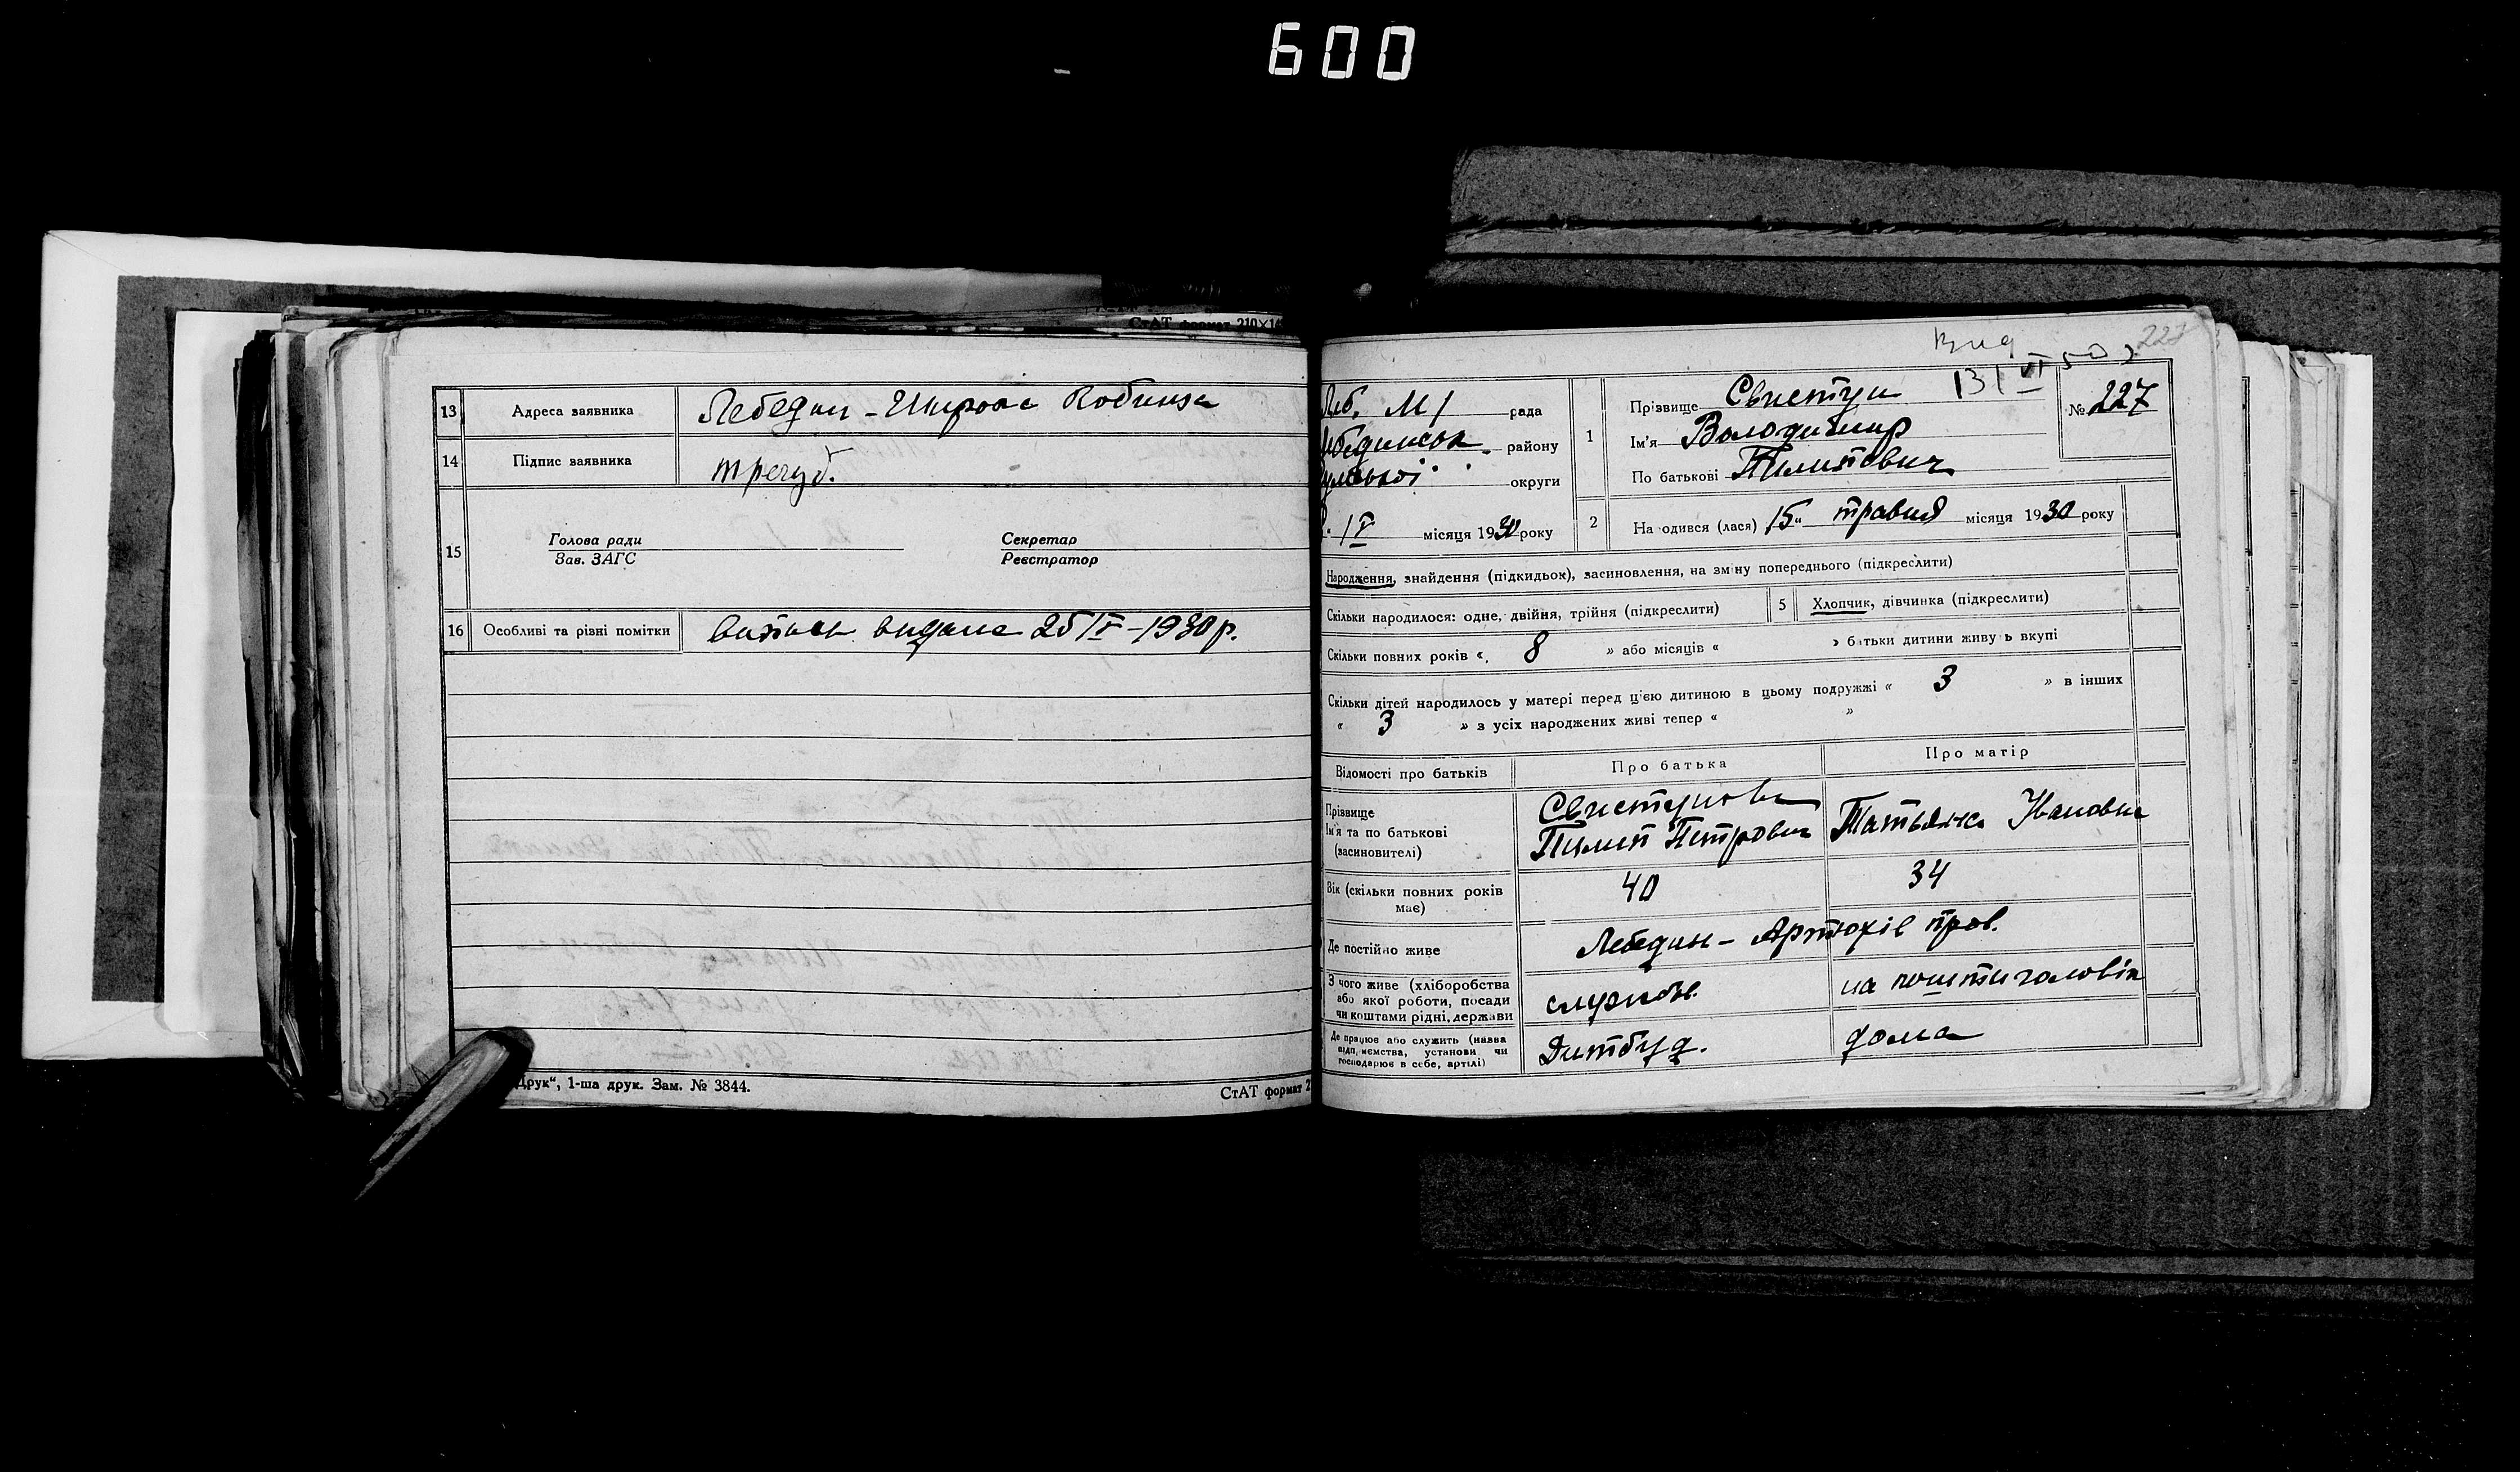 600
СтАТ формат 210×14
13 Адреса заявника Лебедин - Широка
14 Підпис заявника
15 Голова ради Секретар
Зав. ЗАГС Реєстратор
16 Особливі та різні помітки випись видана 25 IV - 1930 р.
Друк“, 1-ша друк. Зам. № 3844.
СтАТ формат 2
227
Леб. М/ рада
район­у
округи
місяця 1930 року
1 Прізвище Свистун
Ім'я Володимир
По батькові Пилипович
№ 227
2 На одився (лася) 15 „ травня місяця 1930 року
Народження, знайдення (підкидьок), засиновлення, на зміну попереднього (підкреслити)
Скільки народилося: одне, двійня, трійня (підкреслити) 5 Хлопчик, дівчинка (підкреслити)
Скільки повних років « 8 » або місяців « » батьки дитини живуть вкупі
Скільки дітей народилось у матері перед цією дитиною в цьому подружжі « 3 » в інших
« 3 » з усіх народжених живі тепер « »
Відомості про батьків Про батька Про матір
Прізвище
Ім'я та по батькові
(засиновителі)
Свистунови
Пилип Петрович Татьяна Івановна
Вік (скільки повних років має) 40 34
Де постійно живе Лебедин - Артюхів пров.
З чого живе (хліборобства або якої роботи, посади чи коштами рідні, держави службов. на
Де працює або служить (назва підприємства, установи чи господарює в себе, артілі) Дитбуд. дома